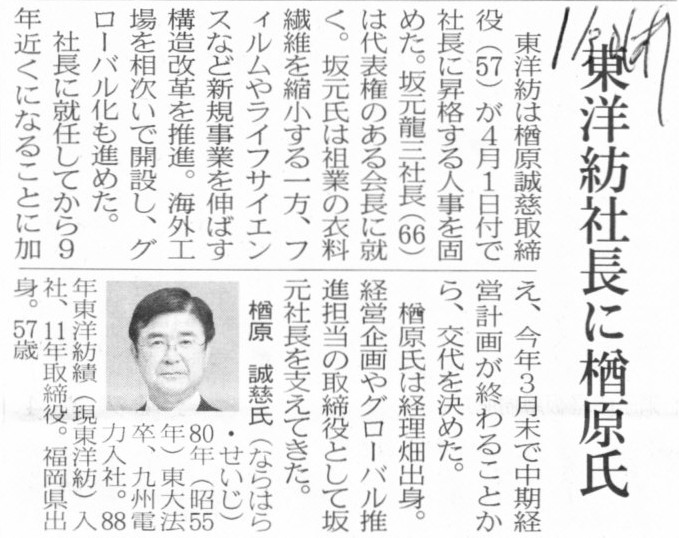 東洋紡社長に楢原氏
東洋紡は楢原誠慈取締
役（57）が4月1日付で
社長に昇格する人事を固
めた。坂元龍三社長（66）
は代表権のある会長に就
く。坂元氏は祖業の衣料
繊維を縮小する一方、フ
ィルムやライフサイエン
スなど新規事業を伸ばす
構造改革を推進。海外工
場を相次いで開設し、グ
ローバル化も進めた。
社長に就任してから9
年近くになることに加
え、今年3月末で中期経
営計画が終わることか
ら、交代を決めた。
楢原氏は経理畑出身。
経営企画やグローバル推
進担当の取締役として坂
元社長を支えてきた。
楢原 誠慈氏（ならはら
・せいじ）
80年（昭55
年）東大法
卒、九州電
力入社。88
年東洋紡績（現東洋紡）入
社、11年取締役。福岡県出
身。57歳